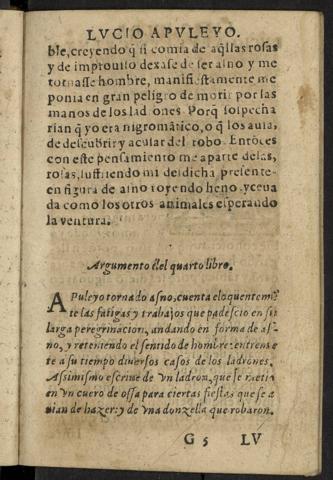 LVCIO APVLEYO.
ble, creyendo q̃ si comia de aq̃llas rosas
y de improuiso dexasse de ser asno y me
tornasse hombre, manifiestamente me
ponia en gran peligro de morir por las
manos de los ladrones. Porq̃ sospecha
rian q̃ yo era nigromático, o q̃ los auia
de descubrir y acusar del robo. Entõces
con este pensamiento me aparte de las
rosas, suffriendo mi desdicha presente
en figura de asno royendo heno, y ceua
da como los otros animales esperando
la ventura.
Argumento d'el quarto libro.
APuleyo tornado asno, cuenta eloquentemẽ
te las fatigas y trabajos que padescio en su
larga peregrinacion, andando en forma de as-
no, y reteniendo el sentido de hombre: entreme
te a su tiempo diuersos casos de los ladrones.
Assimismo escriue de vn ladron, que se metio
en vn cuero de ossa para ciertas fiestas que se a
uian de hazer: y de vna donzella que robaron.
G 5 LV